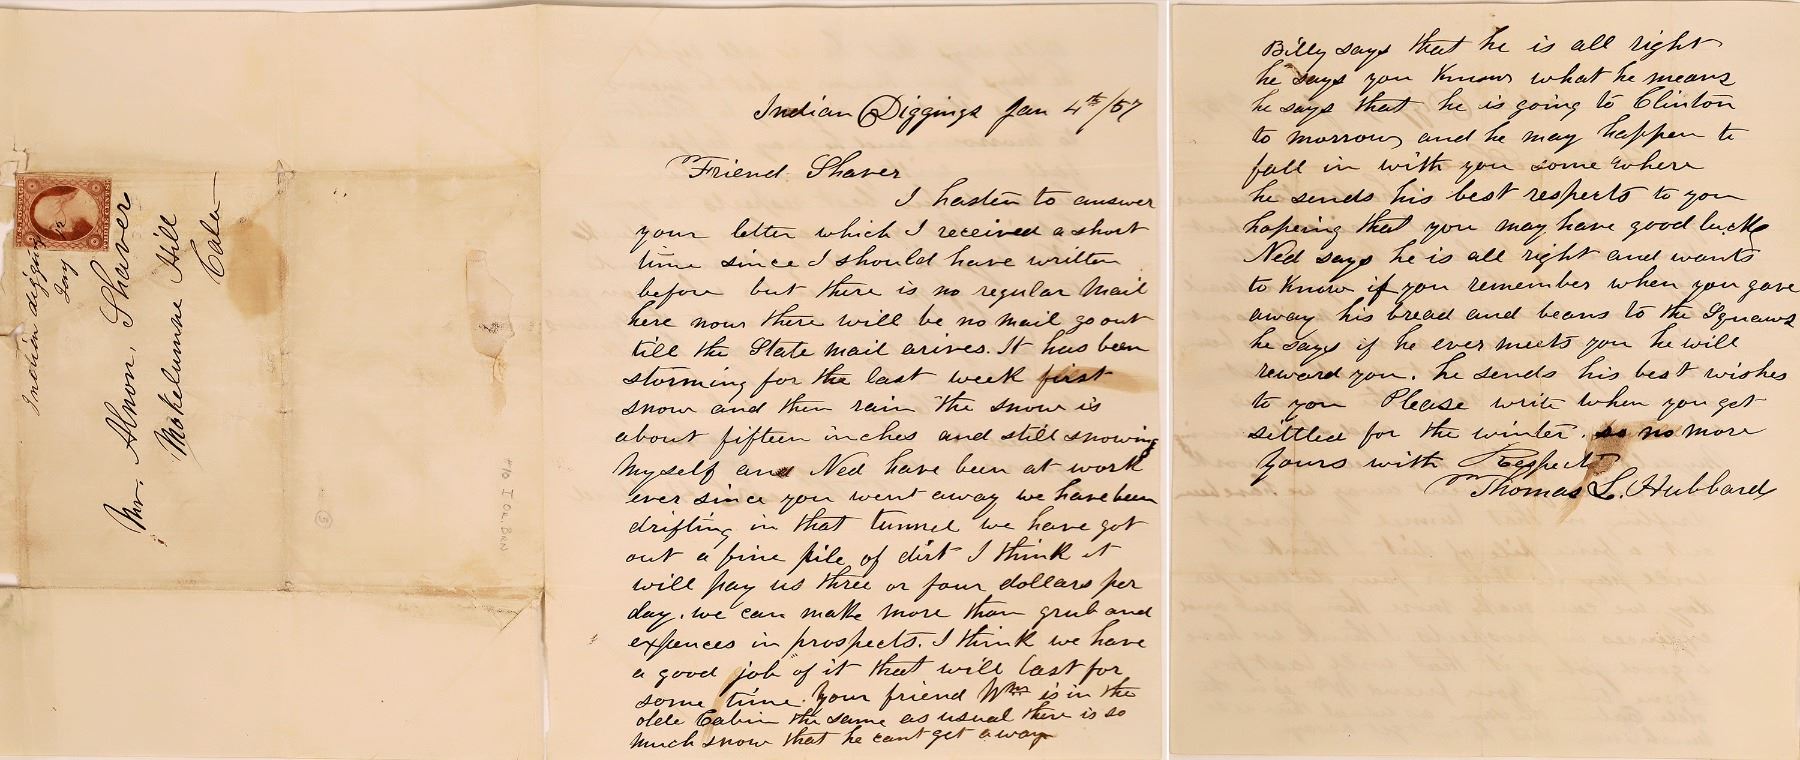 U.S. POSTAGE
THREE CENTS
Indian diggings
Jany 12
Mr. Almon, Shaver
Mokelumne Hill
Cala
Indian Diggings Jan 4th/57
Friend Shaver
I hasten to answer
your letter which I received a short
time since I should have written
before but there is no regular Mail
here now there will be no mail go out
till the State Mail arives. It has been
storming for the last week first
snow and then rain the snow is
about fifteen inches and still snowing
Myself and Ned have been at work
ever since you went away we have been
drifting in that tunnel we have got
out a fine pile of dirt I think it
will pay us three or four dollars per
day. we can make more than grub and
expences in prospects. I think we have
a good job of it that will last for
some time. Your friend Wm is in the
olde Cabin the same as usual there is so
much snow that he cant get away
Billy says that he is all right
he says you know what he means
he says that he is going to Clinton
to morrow and he may happen to
fall in with you some where
he sends his best respects to you
hopeing that you may have good luck
Ned says he is all right and wants
to know if you remember when you gave
away his bread and beans to the Squaws
he says if he ever meets you he will
reward you. he sends his best wishes
to you Please write when you get
settled for the winter. so no more
Yours with Respect
Thomas L. Hubbard